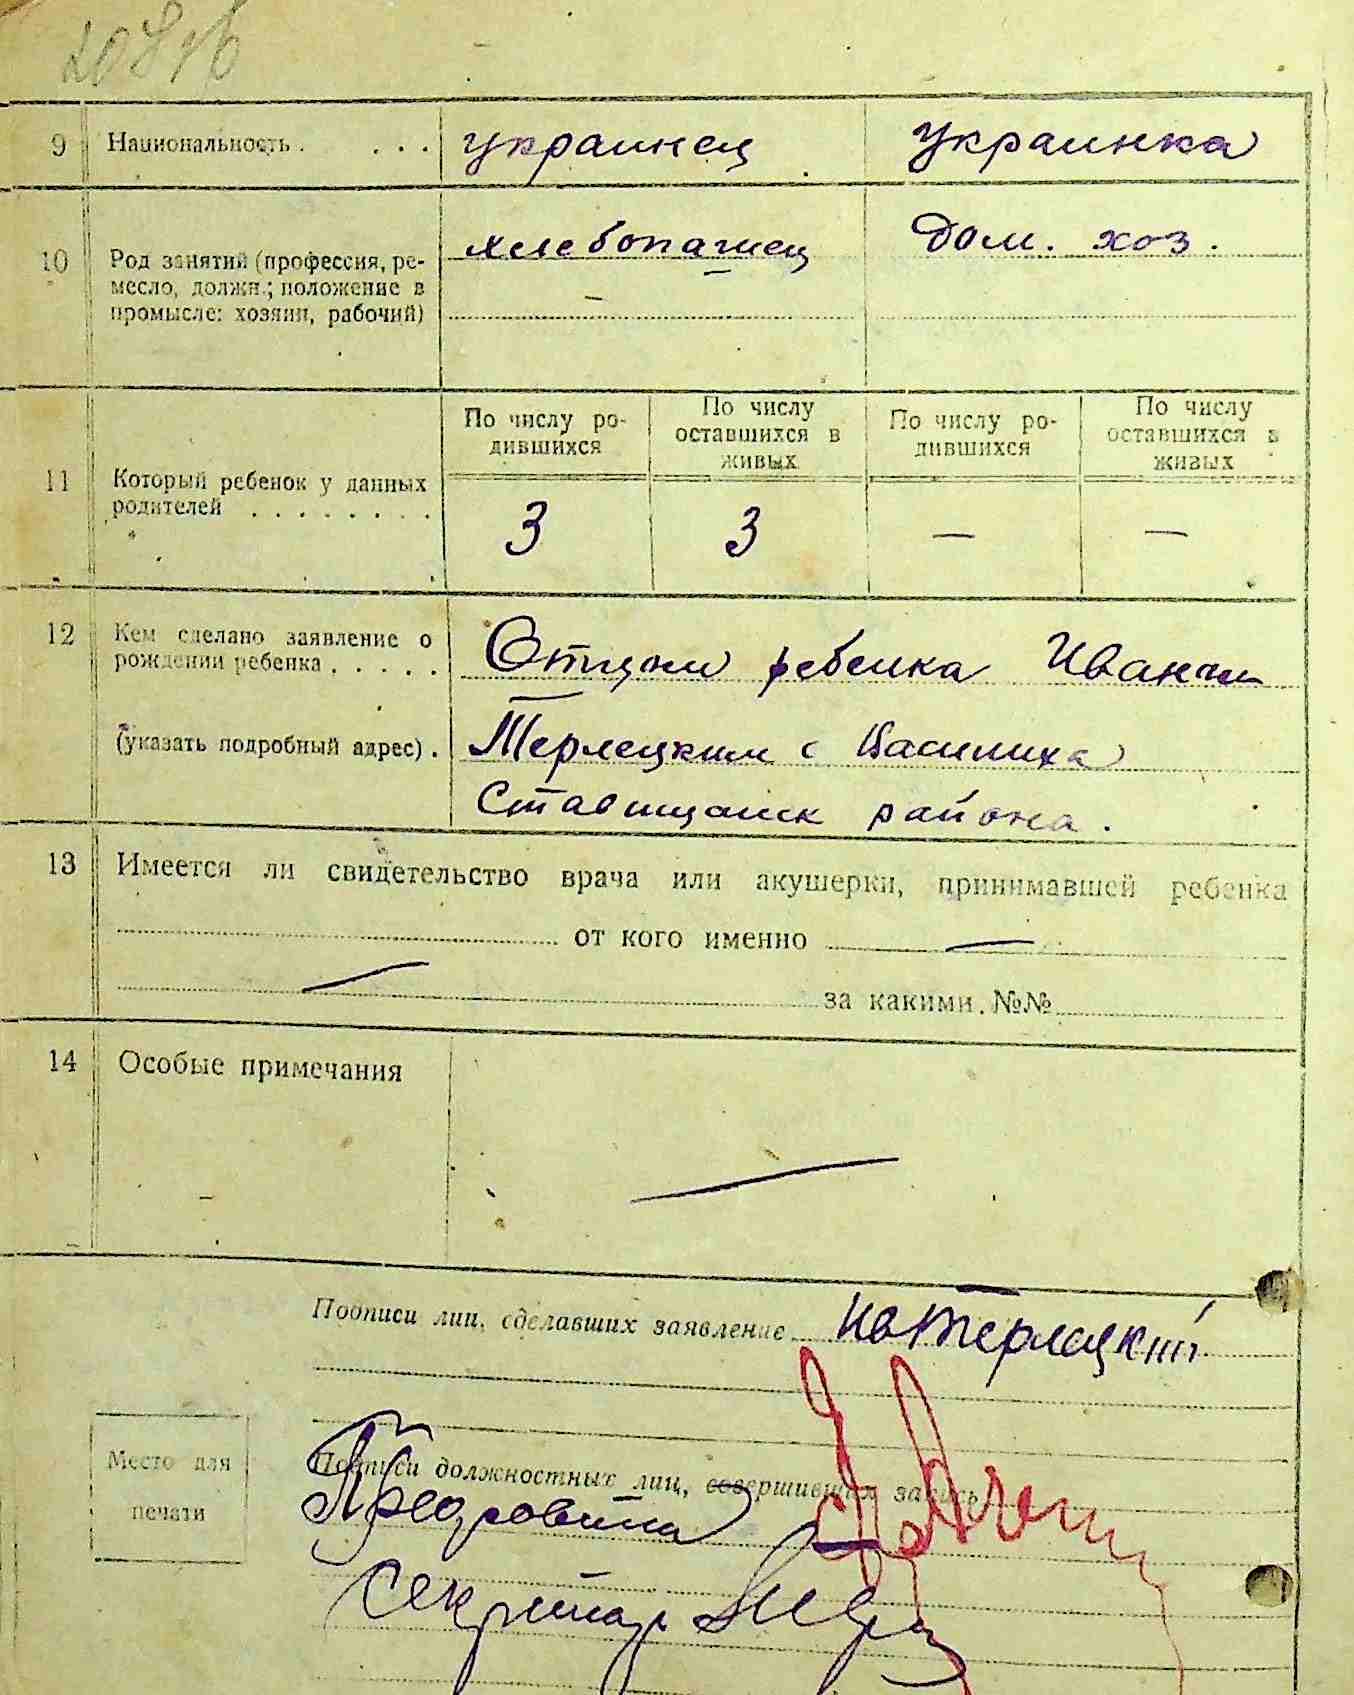 9 Национальность. ... украинец украинка
10 Род занятий (профессия, ре-
месло, должн.; положение в
промысле: хозяин, рабочий)
хлебопашец Дом. хоз.
11 Который ребенок у данных
родителей ........
По числу ро-
дившихся
По числу
оставшихся в
живых
По числу ро-
дившихся
По числу
оставшихся в
живых
3 3 — —
12 Кем сделано заявление о
рождении ребенка.....
(указать подробный адрес).
Отцом ребенка Иваном
Терлецким с Василиха
Ставищанск района.
13 Имеется ли свидетельство врача или акушерки, принимавшей ребенка
от кого именно —
— за какими №№
14 Особые примечания —
Подписи лиц, сделавших заявление Ив Терлецкий
Место для
печати
Подписи должностных лиц, совершивших запись
Секретар